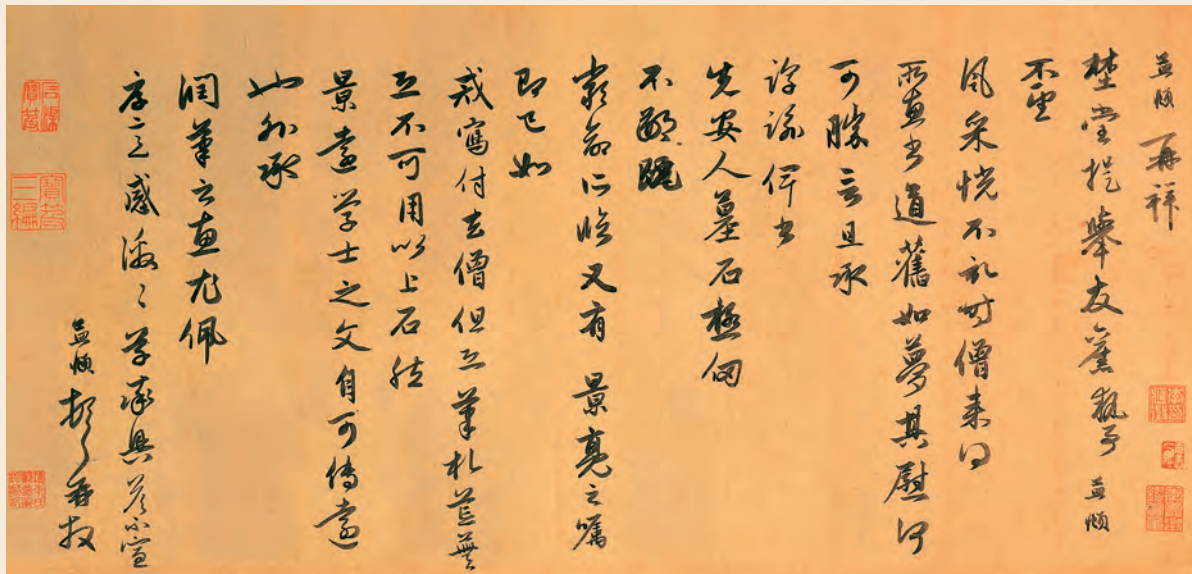 孟頫 再拜
野堂提舉友舊執事 孟頫
不望
風采恍不記時僧來得
所惠書道舊如夢其慰何
可勝言且承
諄諭俾書
先安人墓石極
不鄙
嚴命所臨又有 景亮之囑
即已如
戒寫付去僧但筆札荒蕪
恐不可用以上石然
景遠學士之文自可傳遠
此外承
潤筆之惠尤佩
厚意感激々草率具答不宣
孟頫頓首再拜